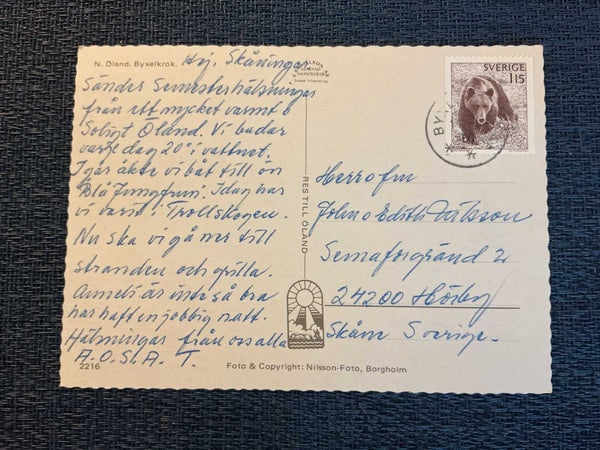 N. Öland. Byxelkrok.
Hej, Skåningar
Sänder Semesterhälsningar
från ett mycket varmt o
Soligt Öland. Vi badar
varje dag 20° i vattnet,
I går åkte vi båt till ön
"Blå Jungfrun". Idag har
vi varit i Trollskogen.
Nu ska vi gå ner till
stranden och grilla.
Anneli är inte så bra
har haft en jobbig natt.
Hälsningar från oss alla
A.O.S.A. T.
2216
Foto & Copyright: Nilsson-Foto, Borgholm
RES TILL ÖLAND
SVERIGE
115
BY
Herr o fru
John o Edith Nilsson
Semaforgränd 2
24200 Hörby
Skåne Sverige.